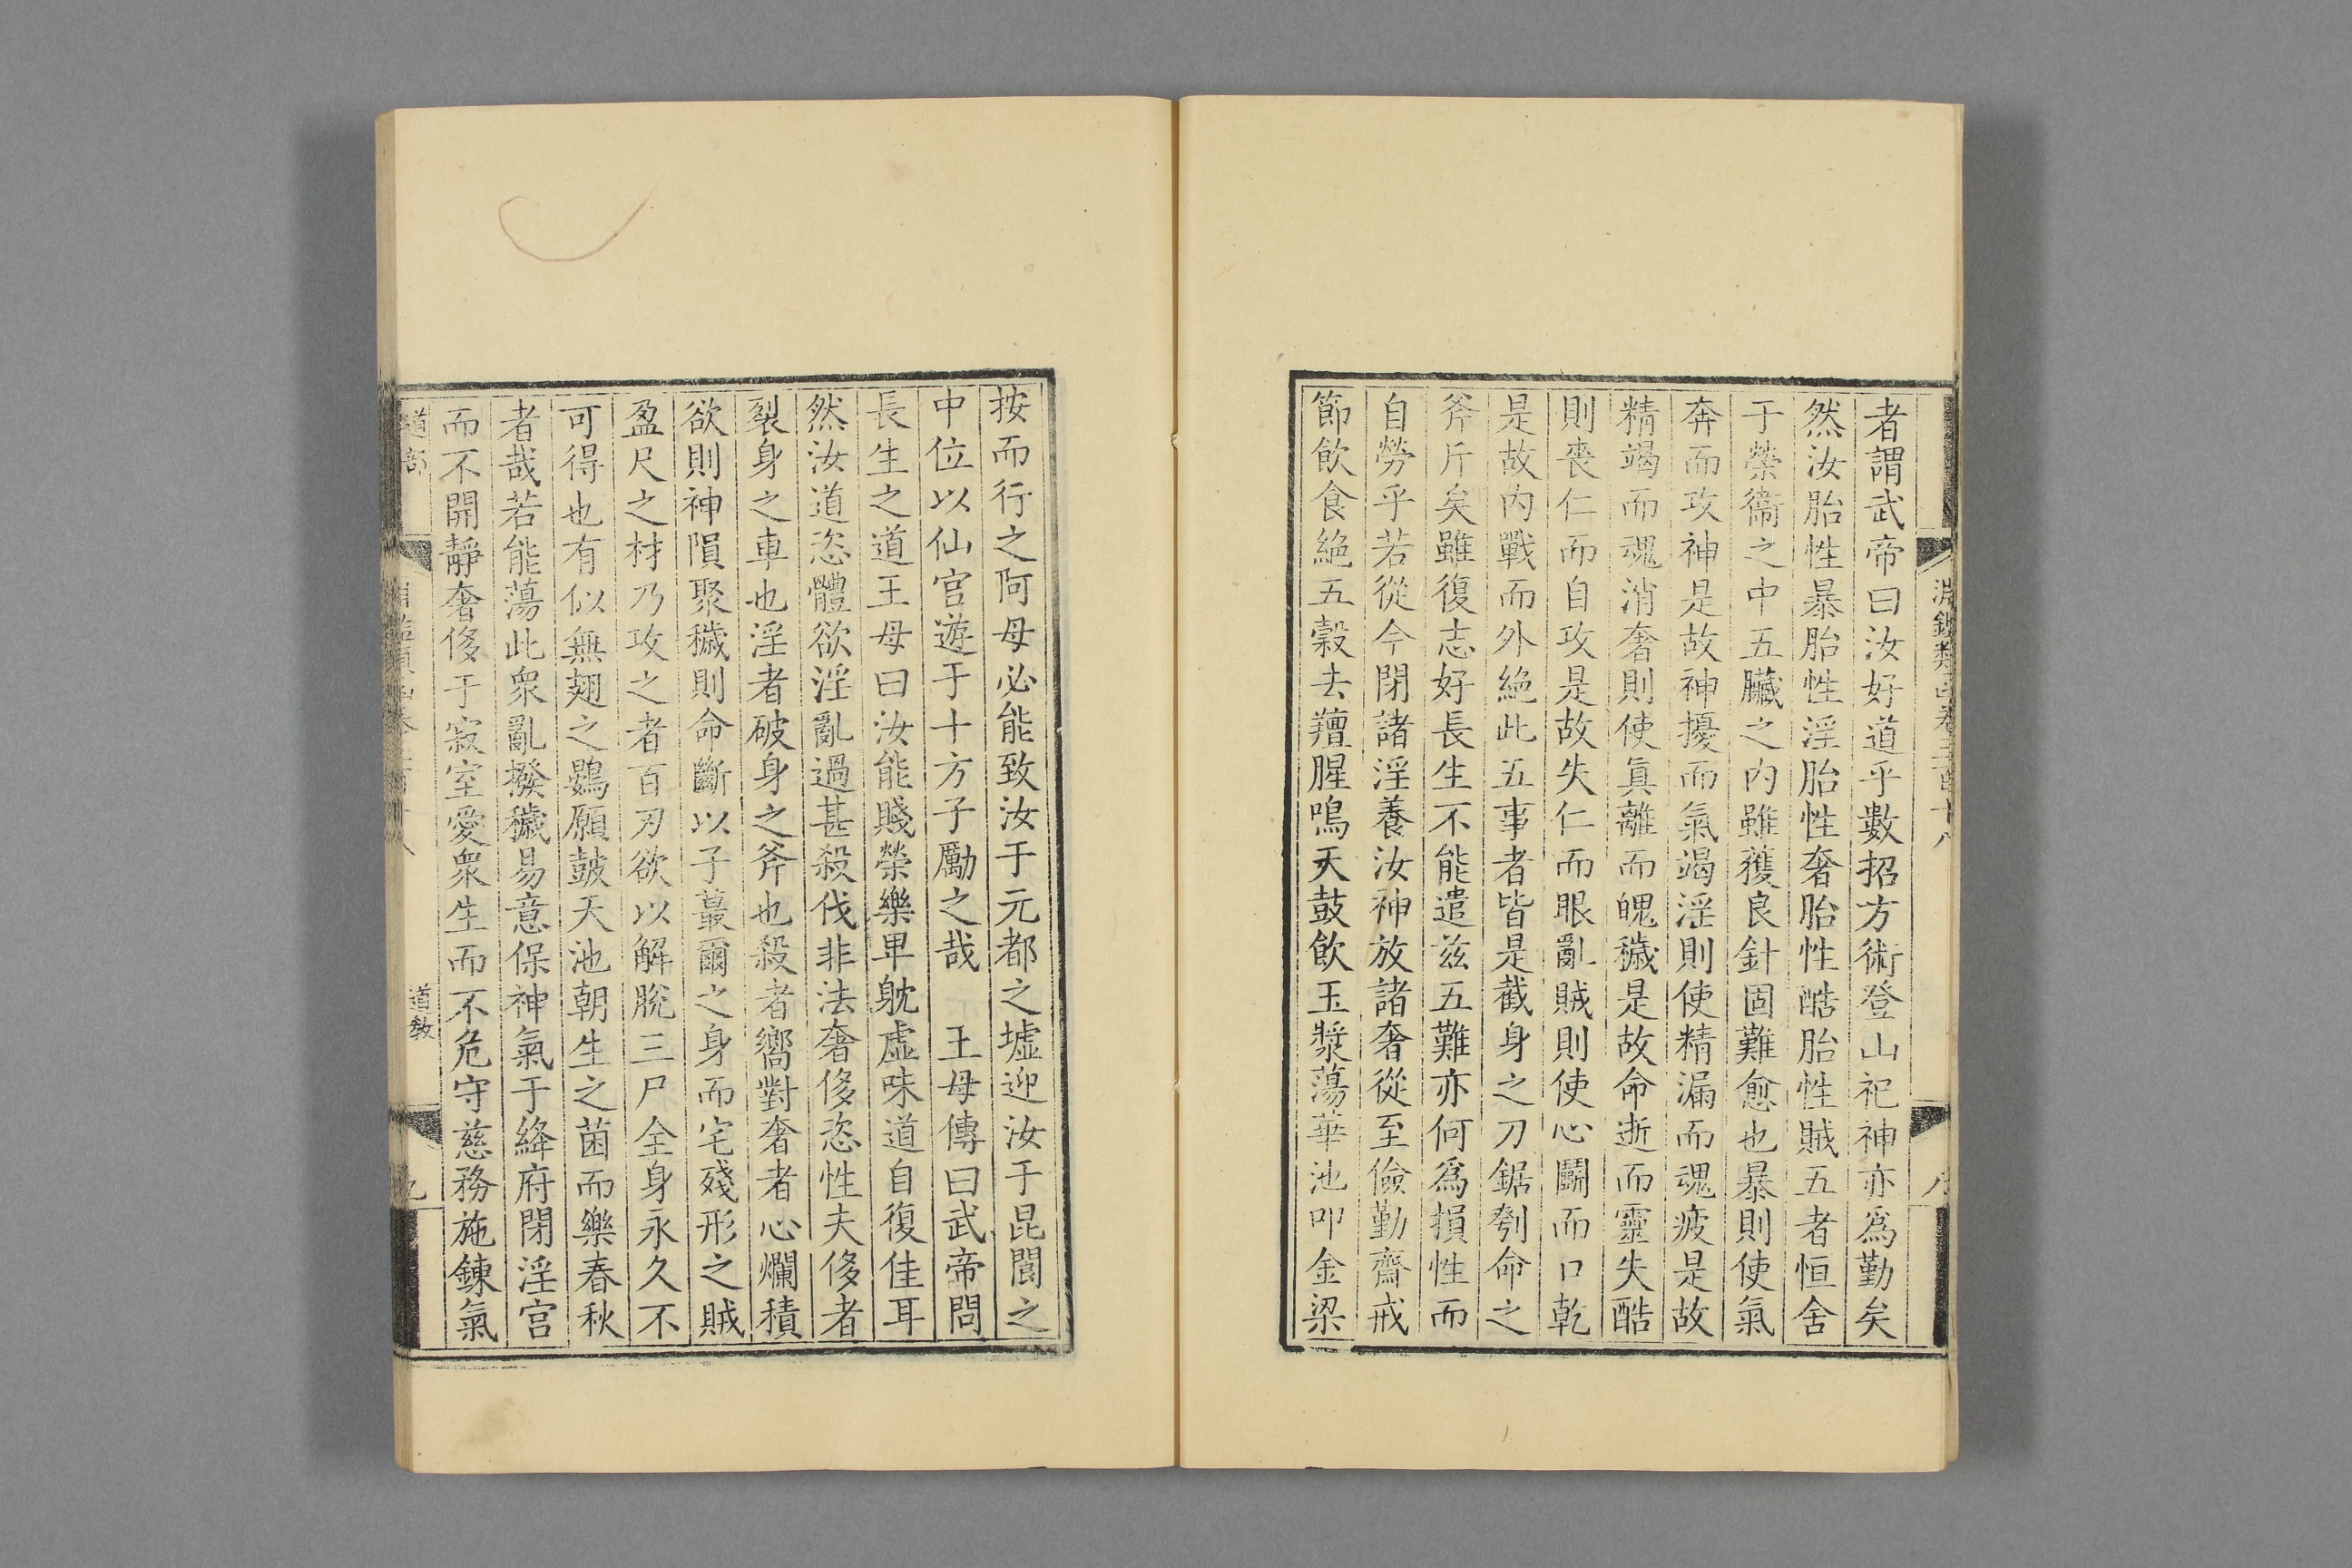 淵鑑類函卷三百十八
八
者謂武帝曰汝好道乎數招方術登山祀神亦爲勤矣
然汝胎性暴胎性淫胎性奢胎性酷胎性賊五者恒舍
于榮衞之中五臟之内雖獲良針固難愈也暴則使氣
奔而攻神是故神擾而氣竭淫則使精漏而魂疲是故
精竭而魂消奢則使真離而魄穢是故命逝而靈失酷
則喪仁而自攻是故失仁而眼亂賊則使心鬭而口乾
是故内戰而外絶此五事者皆是截身之刀鋸刳命之
斧斤矣雖復志好長生不能遣兹五難亦何爲損性而
自勞乎若從今閉諸淫養汝神放諸奢從至儉勤齋戒
節飲食絶五穀去羶腥鳴天鼓飲玉漿蕩華池叩金梁
按而行之阿母必能致汝于元都之墟迎汝于昆閬之
中位以仙官遊于十方子勵之哉　王母傳曰武帝問
長生之道王母曰汝能賤榮樂卑躭虛味道自復佳耳
然汝道恣體欲淫亂過甚殺伐非法奢侈恣性夫侈者
裂身之車也淫者破身之斧也殺者嚮對奢者心爛積
欲則神隕聚穢則命斷以子蕞爾之身而宅殘形之賊
盈尺之材乃攻之者百刃欲以解脫三尸全身永久不
可得也有似無翅之鷃願鼓天池朝生之菌而樂春秋
者哉若能蕩此衆亂撥穢易意保神氣于絳府閉淫宫
而不開靜奢侈于寂室愛衆生而不危守慈務施鍊氣
道部
道教
九